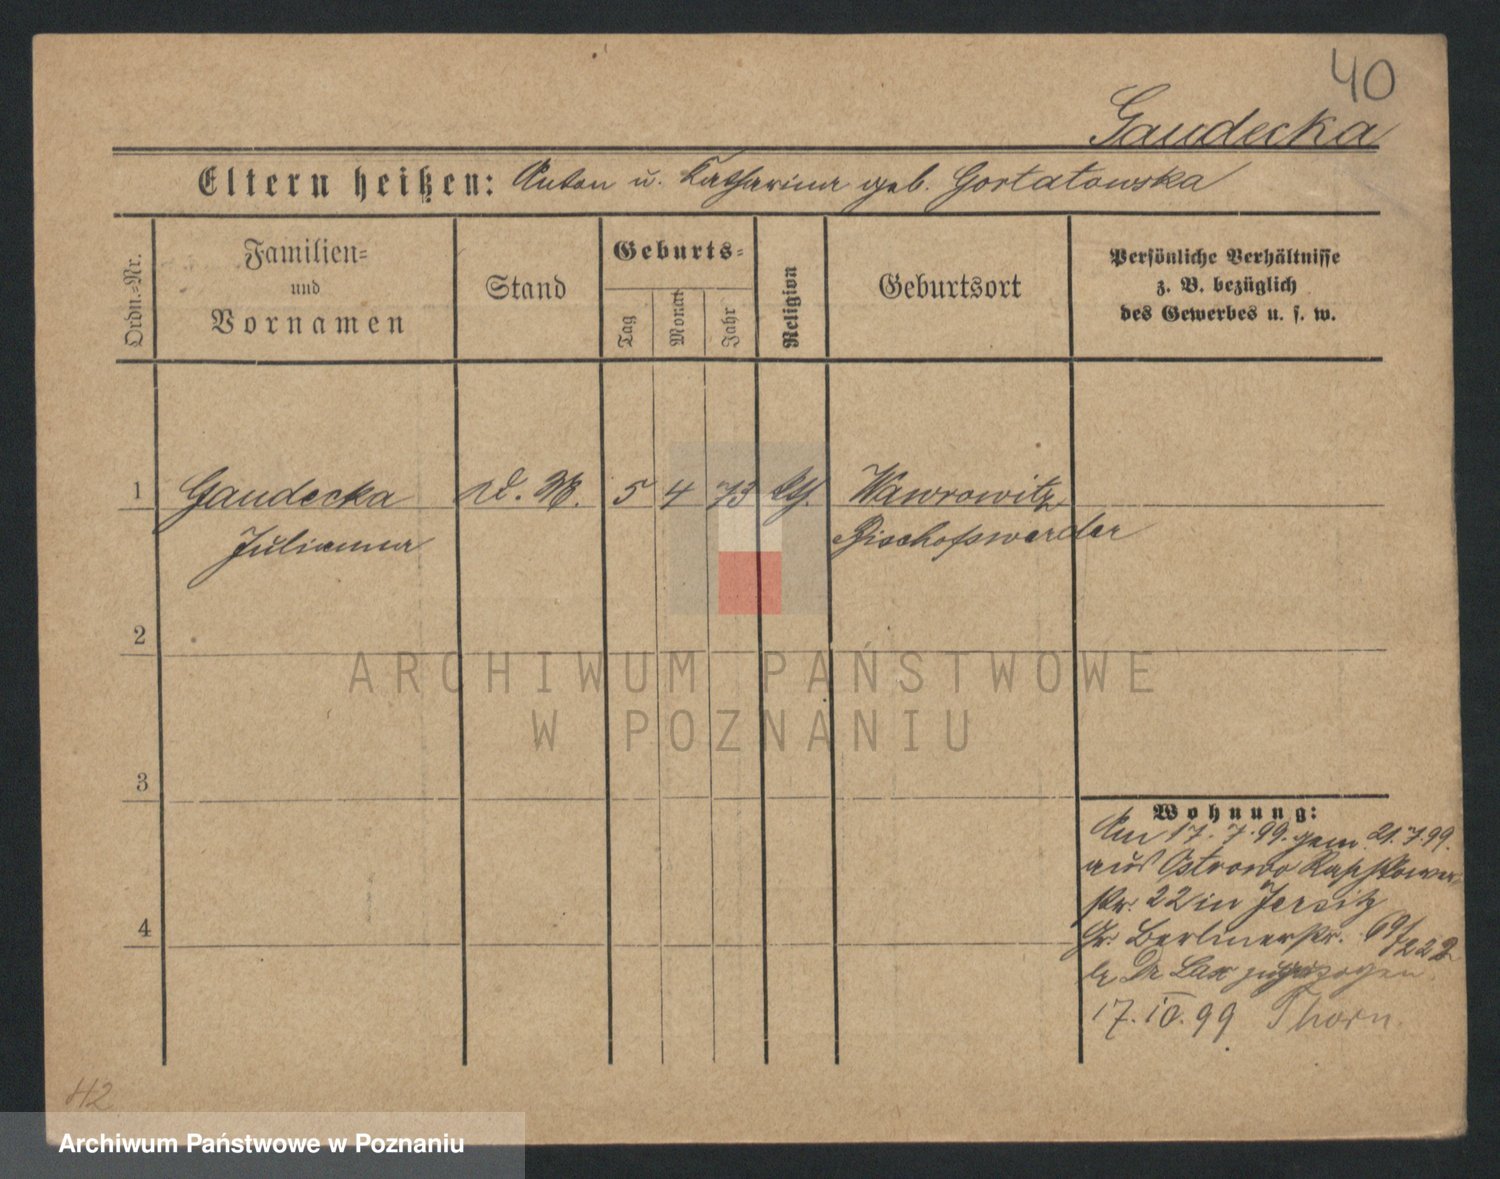 40
Gaudecka
Eltern heißen: Anton u. Katharina geb. Gortatowska
Ordn.-Nr.
Familien-
und
Vornamen
Stand
Geburts-
Tag
Monat
Jahr
Religion
Geburtsort
Persönliche Verhältnisse
z. B. bezüglich
des Gewerbes u. s. w.
1 Gaudecka 5 4 73 Wawrowitz
Julianna Bischofswerder
2
ARCHIWUM PAŃSTWOWE
W POZNANIU
3
Wohnung:
Am 17.7.99. gem. 21.7.99.
aus Ostrowo
str. 22 in Jersitz
Gr. Berlinerstr. 69/
b Dr Lax zugezogen.
17.10.99 Thorn.
4
42
Archiwum Państwowe w Poznaniu